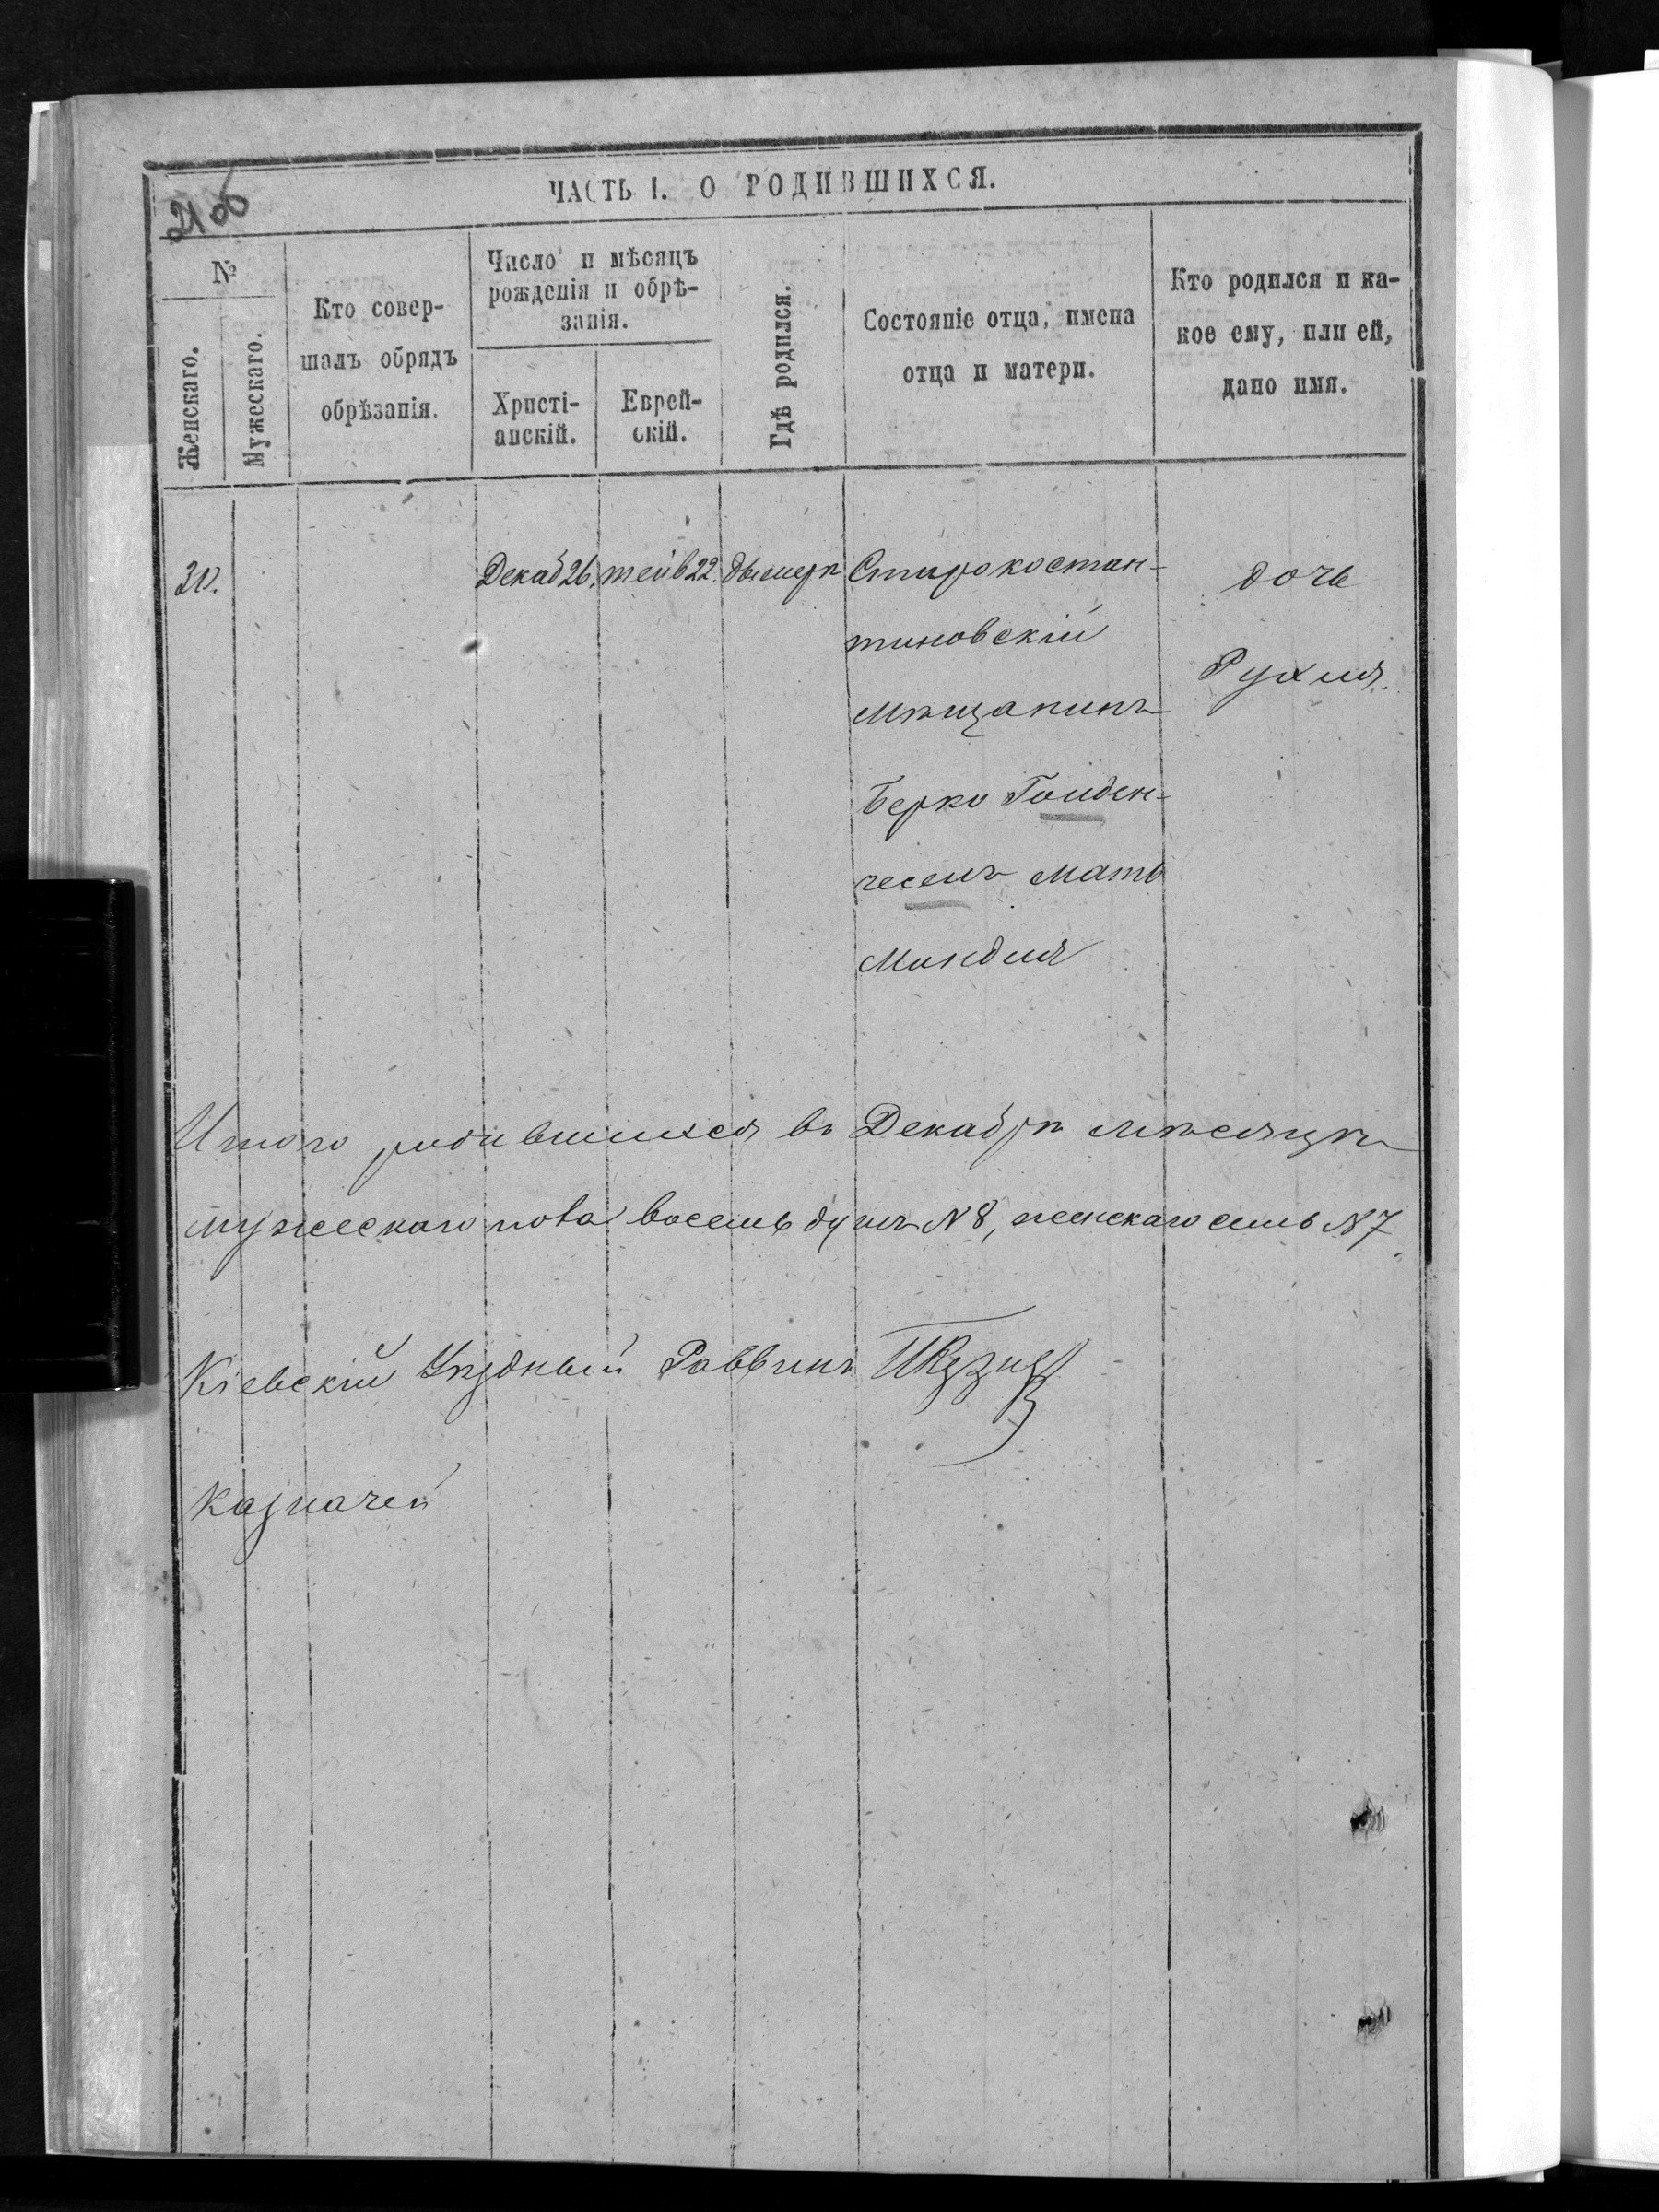 21 об
ЧАСТЬ I. О РОДИВШИХСЯ.
№
Женскаго.
Мужескаго.
Кто совер-
шалъ обрядъ
обрѣзанія.
Число и мѣсяцъ
рожденія и обрѣ-
занія.
Христі-
анскій.
Еврей-
скій.
Гдѣ родился.
Состояніе отца, имена
отца и матери.
Кто родился и ка-
кое ему, или ей,
дано имя.
30. Декаб 26. тейв 22. дымерѣ Старокостан- дочь
тиновскій
Рухля.
Мѣщанинъ
Берко
Мать
Миндля
Итого родившихся въ Декабрѣ мѣсяцѣ
мужескаго пола восемь душъ № 8, женскаго семь № 7.
Кіевскій Уѣздный Раввинъ
Казначей